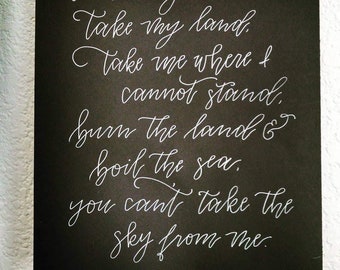 take my land,
take me where I
cannot stand.
burn the land &
boil the sea,
you can't take the
sky from me.